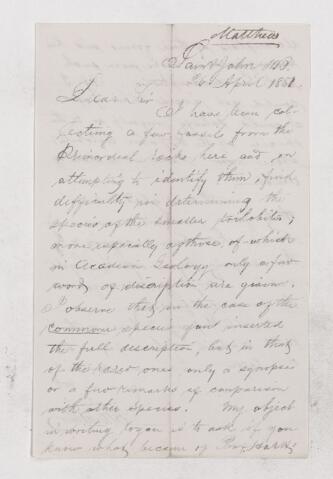 Matthew
Saint John NB
26 April 1881
Dear Sir
I have been col-
lecting a few fossils from the
Primordial rocks here and on
attempting to identify them find
difficulty in determining the
species of the smaller trilobites,
more especially of those of which
in Acadian Geology only a few
words of description are given.
I observe that in the case of the
commoner species you inserted
the full description, but in that
of the rarer ones only a synopsis
or a few remarks of comparison
with other species. My object
in writing to you is to ask if you
know what became of Prof. Hartt's